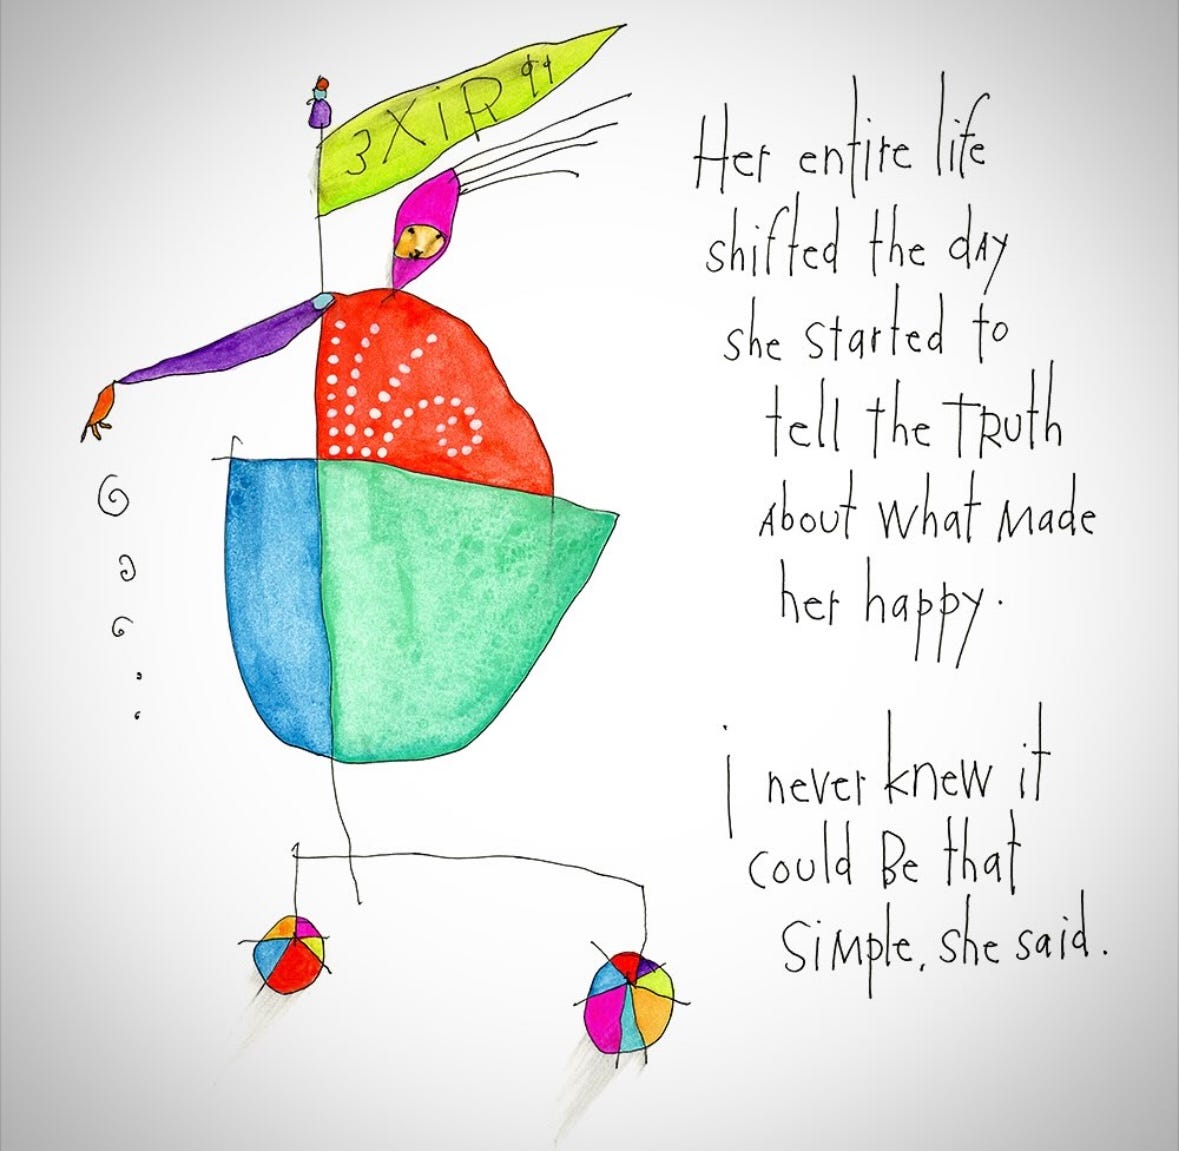 3XiR 99
Her entire life
shifted the dAy
she started to
tell the TRuth
About what made
her happy.
i never knew it
could Be that
simple, she said.